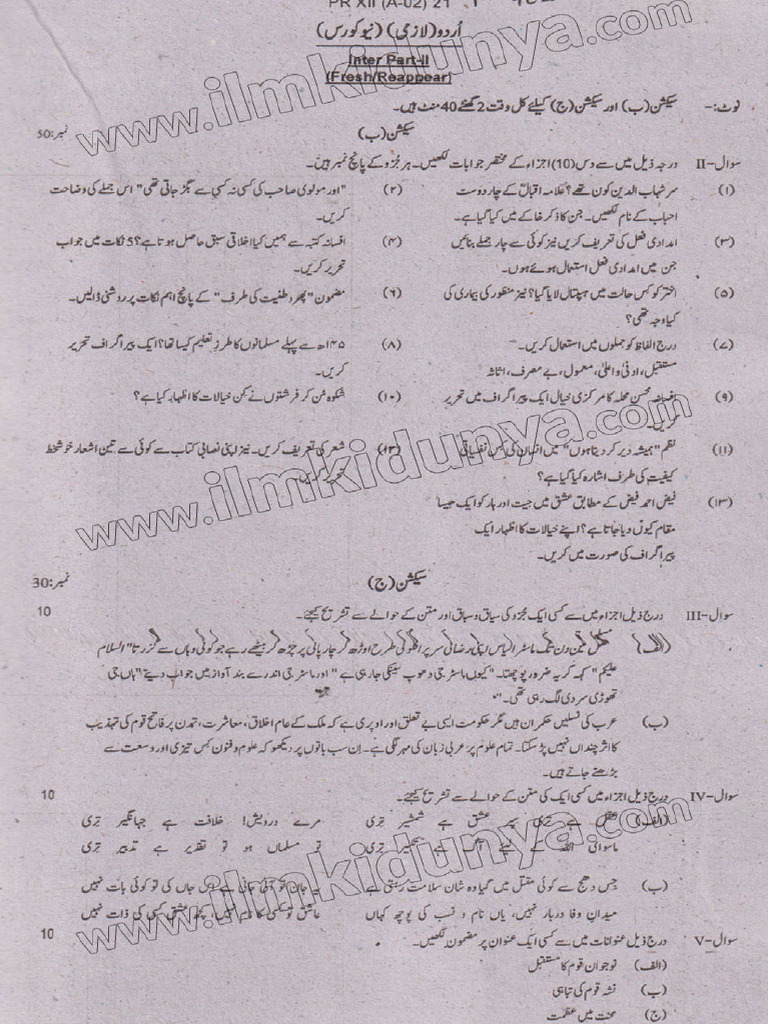 PR XII (A-02) 21
اُردو(لازمی) (نیو کورس)
Inter Part-II
(Fresh/Reappear)
نوٹ:- سیکشن (ب) اور سیکشن (ج) کیلئے کل وقت 2 گھنٹے 40 منٹ ہیں۔
سیکشن (ب) نمبر:50
سوال-II درجہ ذیل میں سے دس (10) اجزاء کے مختصر جوابات لکھیں۔ ہر جُزو کے پانچ نمبر ہیں۔
(۱) سر شہاب الدین کون تھے؟ علامہ اقبالؒ کے چار دوست
احباب کے نام لکھیں۔ جن کا ذکر خاکے میں کیا گیا ہے۔
(۲) "اور مولوی صاحب کی کسی نہ کسی سے بگڑ جاتی تھی" اس جملے کی وضاحت
کریں۔
(۳) امدادی فعل کی تعریف کریں نیز کوئی سے چار جملے بنائیں
جن میں امدادی فعل استعمال ہوئے ہوں۔
(۴) افسانہ کتبہ سے ہمیں کیا اخلاقی سبق حاصل ہوتا ہے؟ 5 نکات میں جواب
تحریر کریں۔
(۵) اختر کو کس حالت میں ہسپتال لایا گیا؟ نیز منظور کی بیماری کی
کیا وجہ تھی؟
(۶) مضمون "پھر وطنیت کی طرف" کے پانچ اہم نکات پر روشنی ڈالیں۔
(۷) درج الفاظ کو جملوں میں استعمال کریں۔
مستقبل، ادنیٰ و اعلیٰ، معمول، بے مصرف، اثاثہ
(۸) ۱۴۵ھ سے پہلے مسلمانوں کا طرزِ تعلیم کیسا تھا؟ ایک پیراگراف تحریر
کریں۔
(۹) محسن محلہ کا مرکزی خیال ایک پیراگراف میں تحریر
کریں۔
(۱۰) شکوہ سُن کر فرشتوں نے کِن خیالات کا اظہار کیا ہے؟
(۱۱) نظم "ہمیشہ دیر کر دیتا ہوں" میں انسان کی کِس نفسیاتی
کیفیت کی طرف اشارہ کیا گیا ہے؟
(۱۲) شعر کی تعریف کریں۔ نیز اپنی نصابی کتاب سے کوئی سے تین اشعار خوشخط
تحریر کریں۔
(۱۳) فیض احمد فیض کے مطابق عشق میں جیت اور ہار کو ایک جیسا
مقام کیوں دیا جاتا ہے؟ اپنے خیالات کا اظہار ایک
پیراگراف کی صورت میں کریں۔
سیکشن (ج) نمبر:30
سوال-III درج ذیل اجزاء میں سے کسی ایک جُزو کی سیاق و سباق اور متن کے حوالے سے تشریح کیجئے۔ 10
(الف) مکمل تین دن تک ماسٹر الیاس اپنی رضائی سر پر اوڑھ کر چارپائی پر چڑھ کر بیٹھے رہے جو کوئی وہاں سے گزرتا "السلام
علیکم" کہہ کر یہ ضرور پوچھتا۔ "کیوں ماسٹر جی دھوپ سینکی جا رہی ہے" اور ماسٹر جی اندر سے بند آواز میں جواب دیتے "ہاں جی
تھوڑی سردی لگ رہی تھی۔"
(ب) عرب کی نسلیں حکمران ہیں مگر حکومت ایسی بے تعلق اور اوپری ہے کہ ملک کے عام اخلاق، معاشرت، تمدن پر فاتح قوم کی تہذیب
کا اثر چنداں نہیں پڑ سکتا۔ تمام علوم پر عربی زبان کی مہر لگی ہے۔ اِن سب باتوں پر دیکھو کہ علوم و فنون کِس تیزی اور وسعت سے
بڑھتے جاتے ہیں۔
سوال-IV درج ذیل اجزاء میں کسی ایک کی متن کے حوالے سے تشریح کیجئے۔ 10
(الف) عقل ہے تری سپر عشق ہے شمشیر تری مرے درویش! خلافت ہے جہانگیر تری
ماسوائی اللہ کے لئے ہے تکبیر تری تو مسلماں ہو تو تقدیر ہے تدبیر تری
(ب) جس دھج سے کوئی مقتل میں گیا وہ شان سلامت رہتی ہے یہ جان تو آنی جانی ہے اس جاں کی تو کوئی بات نہیں
میدانِ وفا دربار نہیں، یاں نام و نسب کی پوچھ کہاں عاشق تو کسی کا نام نہیں، کچھ عشق کسی کی ذات نہیں
سوال-V درج ذیل عنوانات میں سے کسی ایک عنوان پر مضمون لکھیں۔ 10
(الف) نوجوان قوم کا مستقبل
(ب) نشہ قوم کی تباہی
(ج) محنت میں عظمت
www.ilmkidunya.com
www.ilmkidunya.com
www.ilmkidunya.com